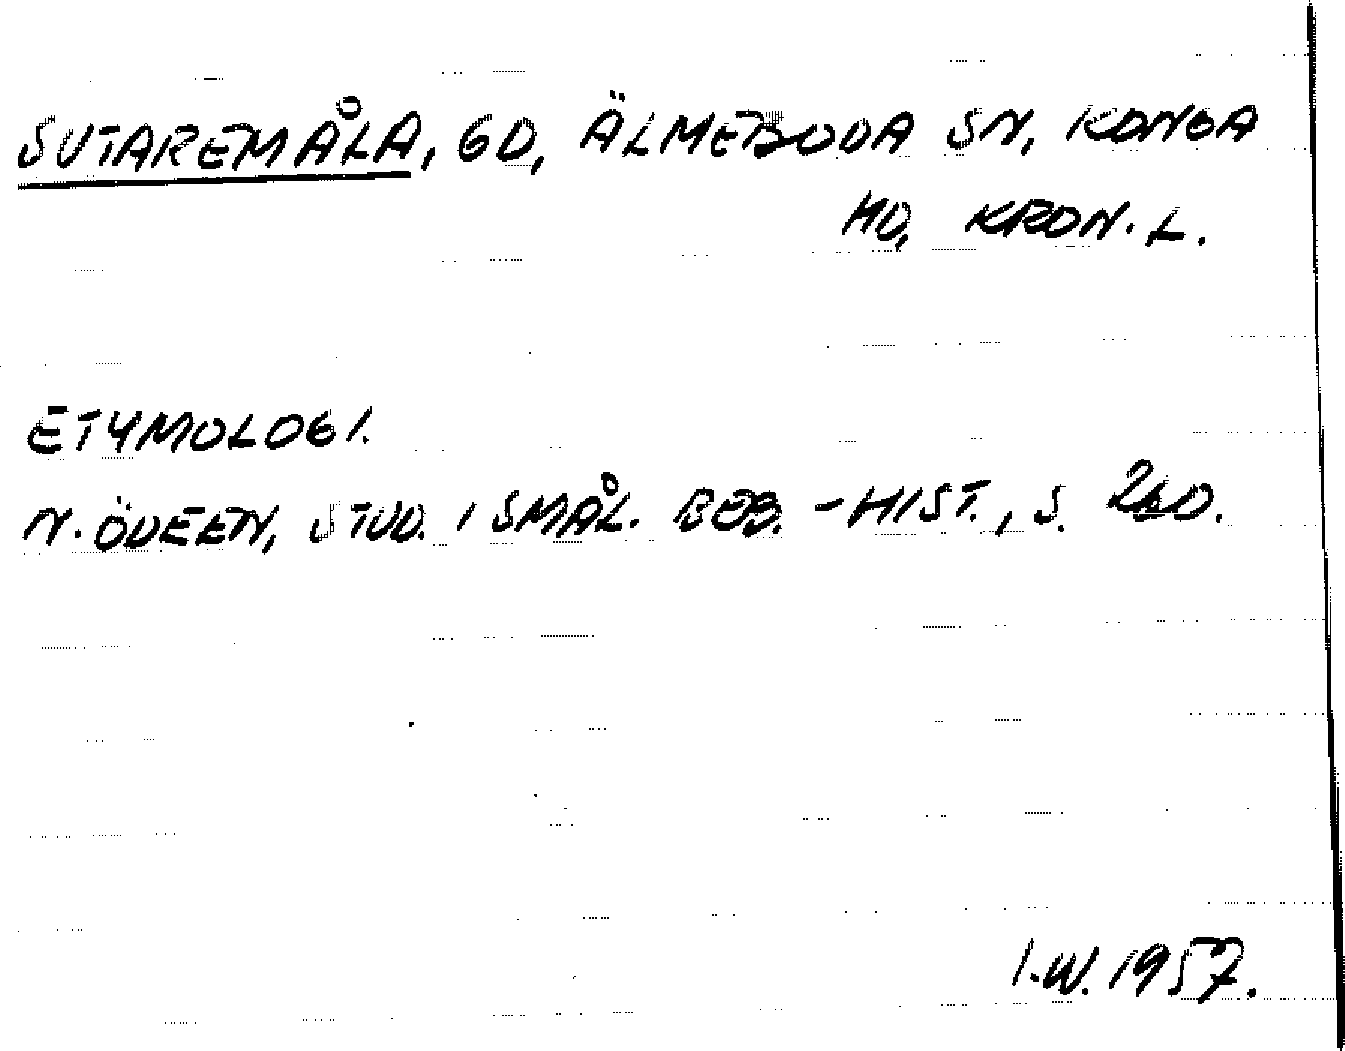 SUTAREMÅLA, GD, ÄLMEBODA SN, KONGA
HD, KRON. L.
ETYMOLOGI.
N. ÖDEEN, STUD. I SMÅL. BEB. - HIST., S. 260.
I.W. 1957.